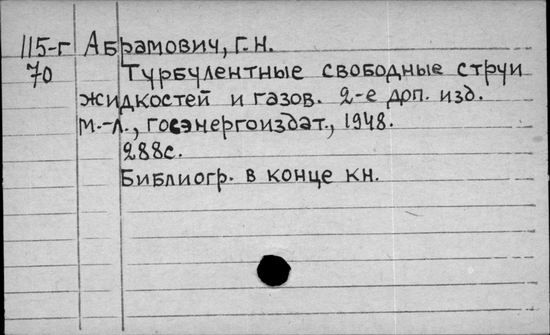 115-г Абрамович, Г.Н.
70 Турбулентные свободные струи
жидкостей и газов. 2-е доп. изд.
М.-Л., Госэнергоиздат., 1948.
288с.
Библиогр. в конце кн.